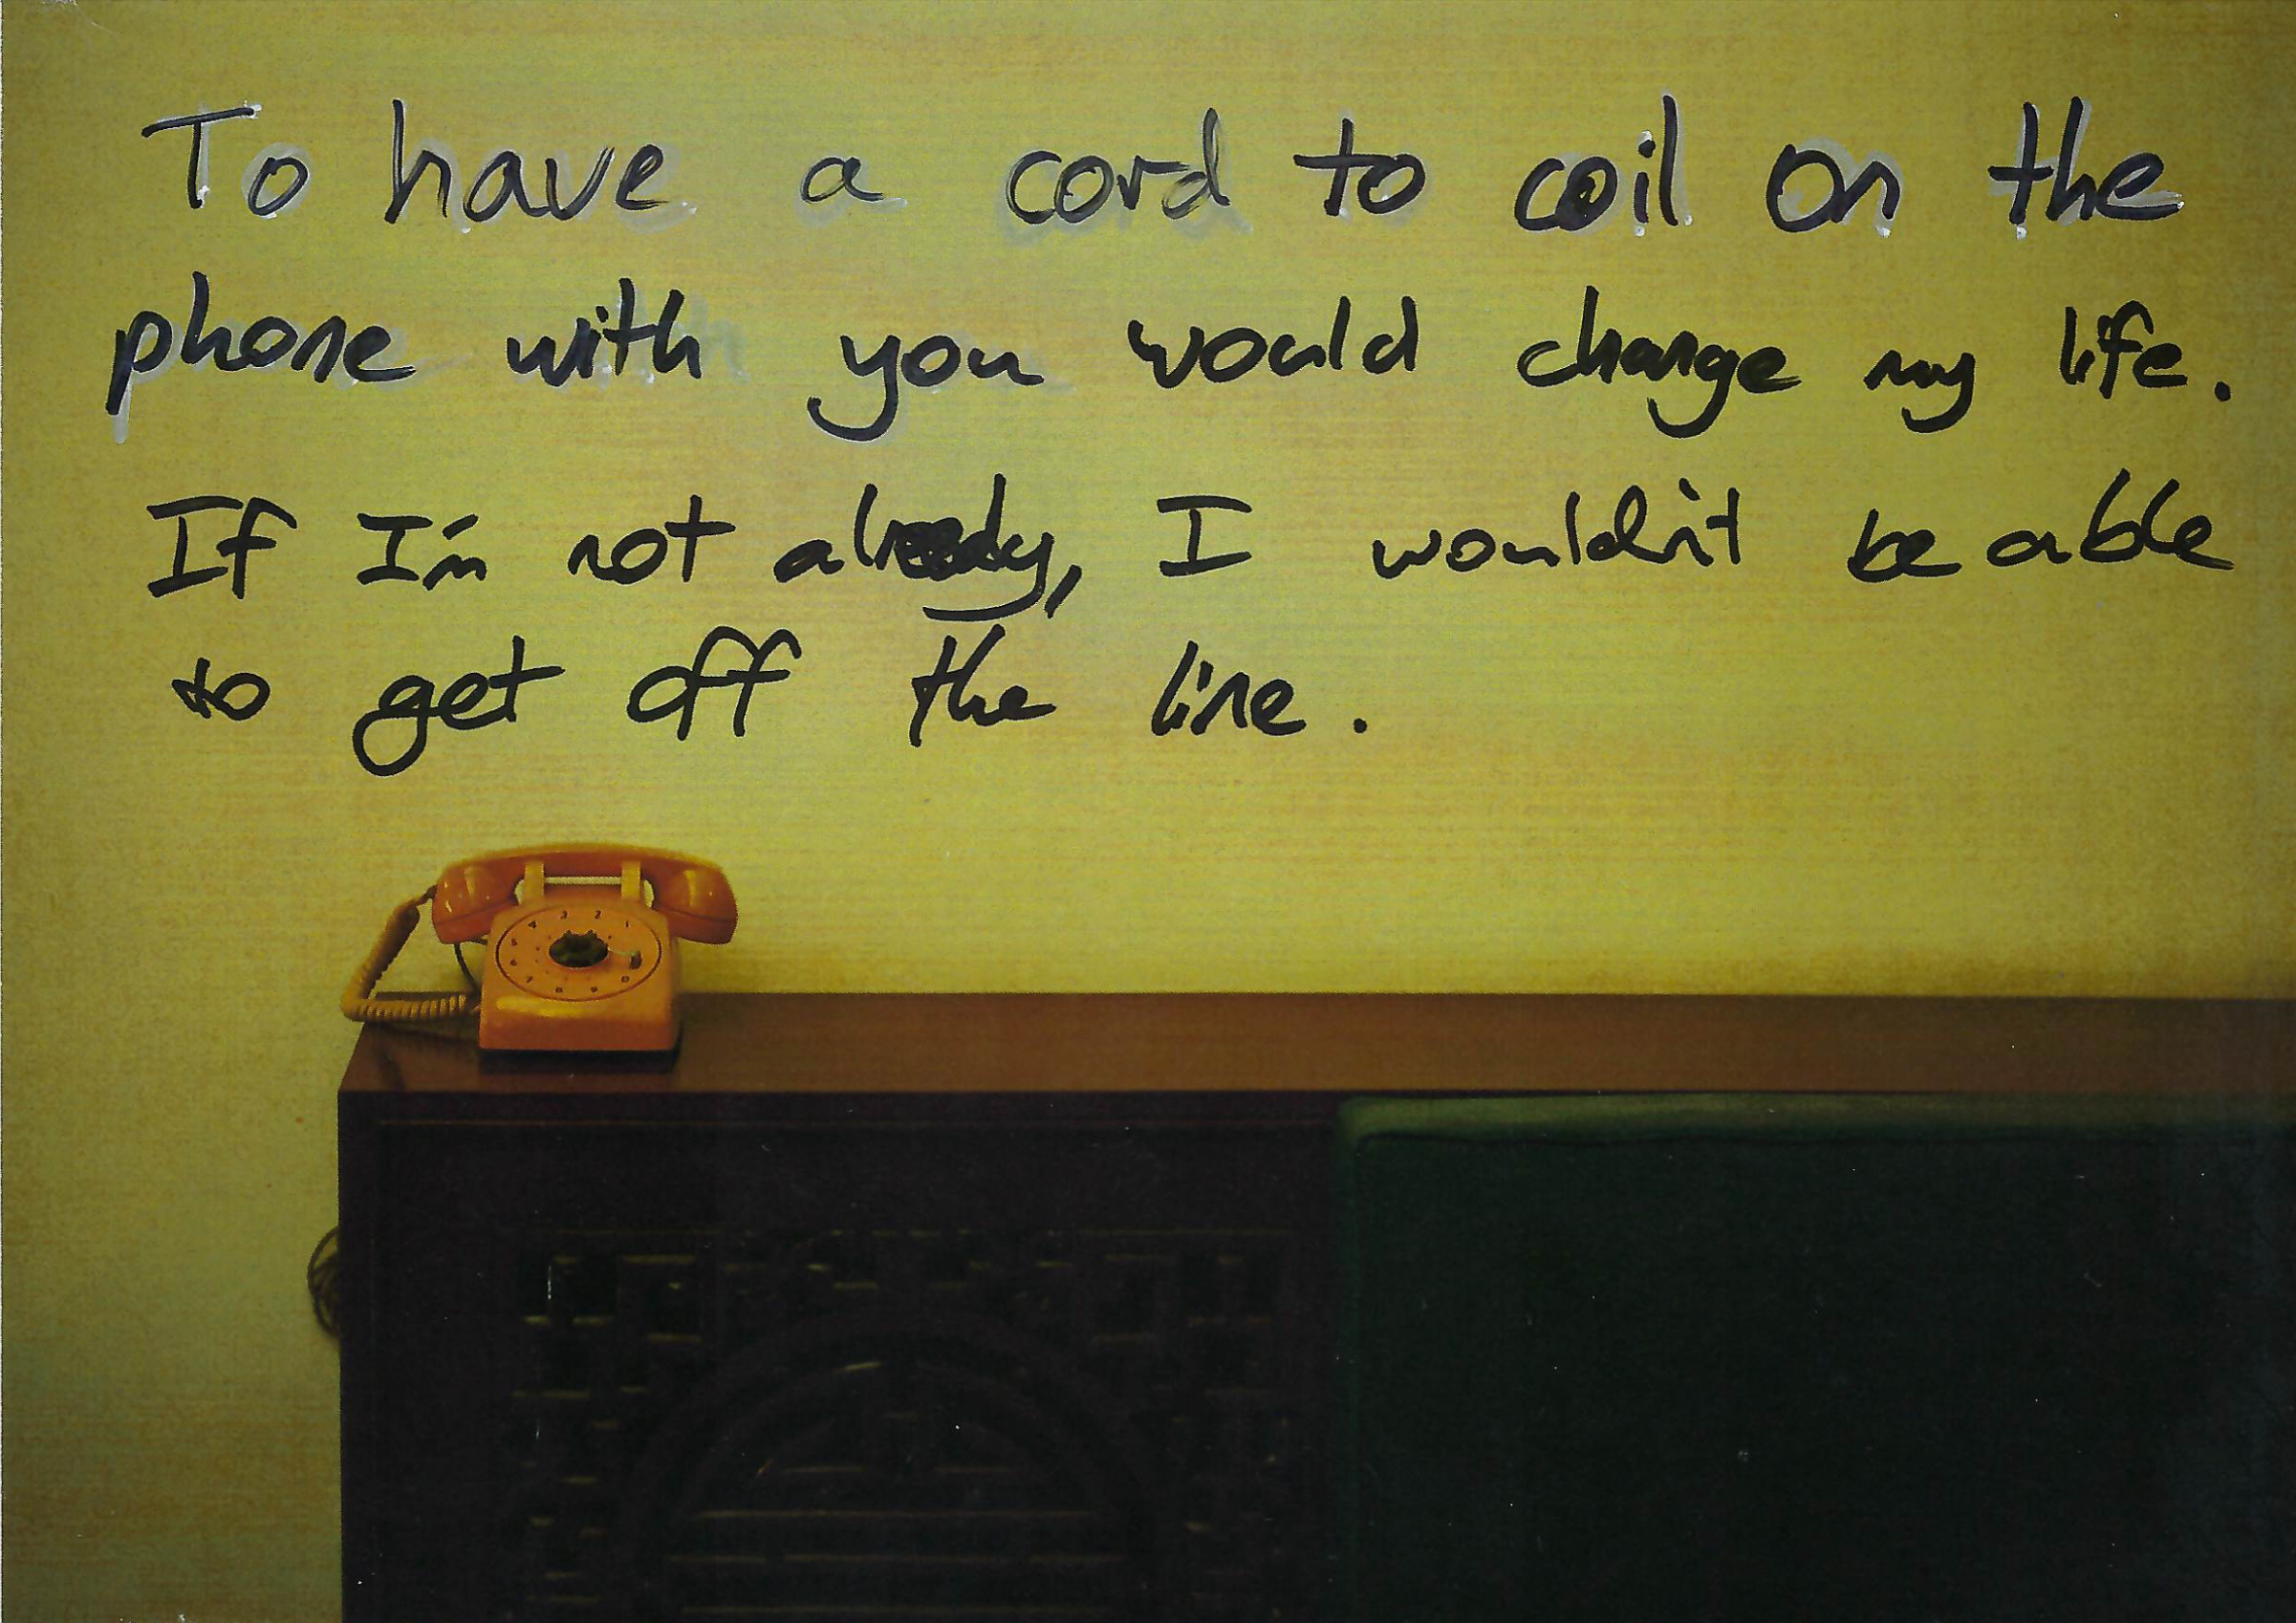 To have a cord to coil on the
phone with you would change my life.
If I'm not already, I wouldn't be able
to get off the line.